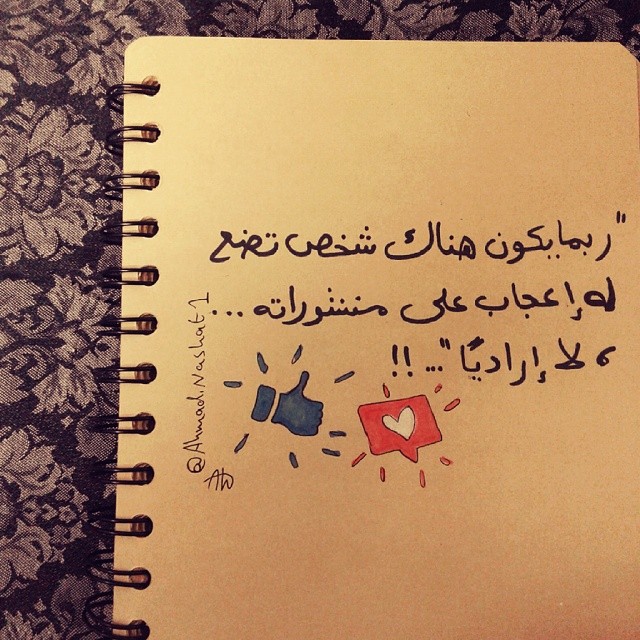 "ربما يكون هناك شخص تضع
له إعجاب على منشوراته ...
، لا إراديًا "... !!
@AhmadNashat1